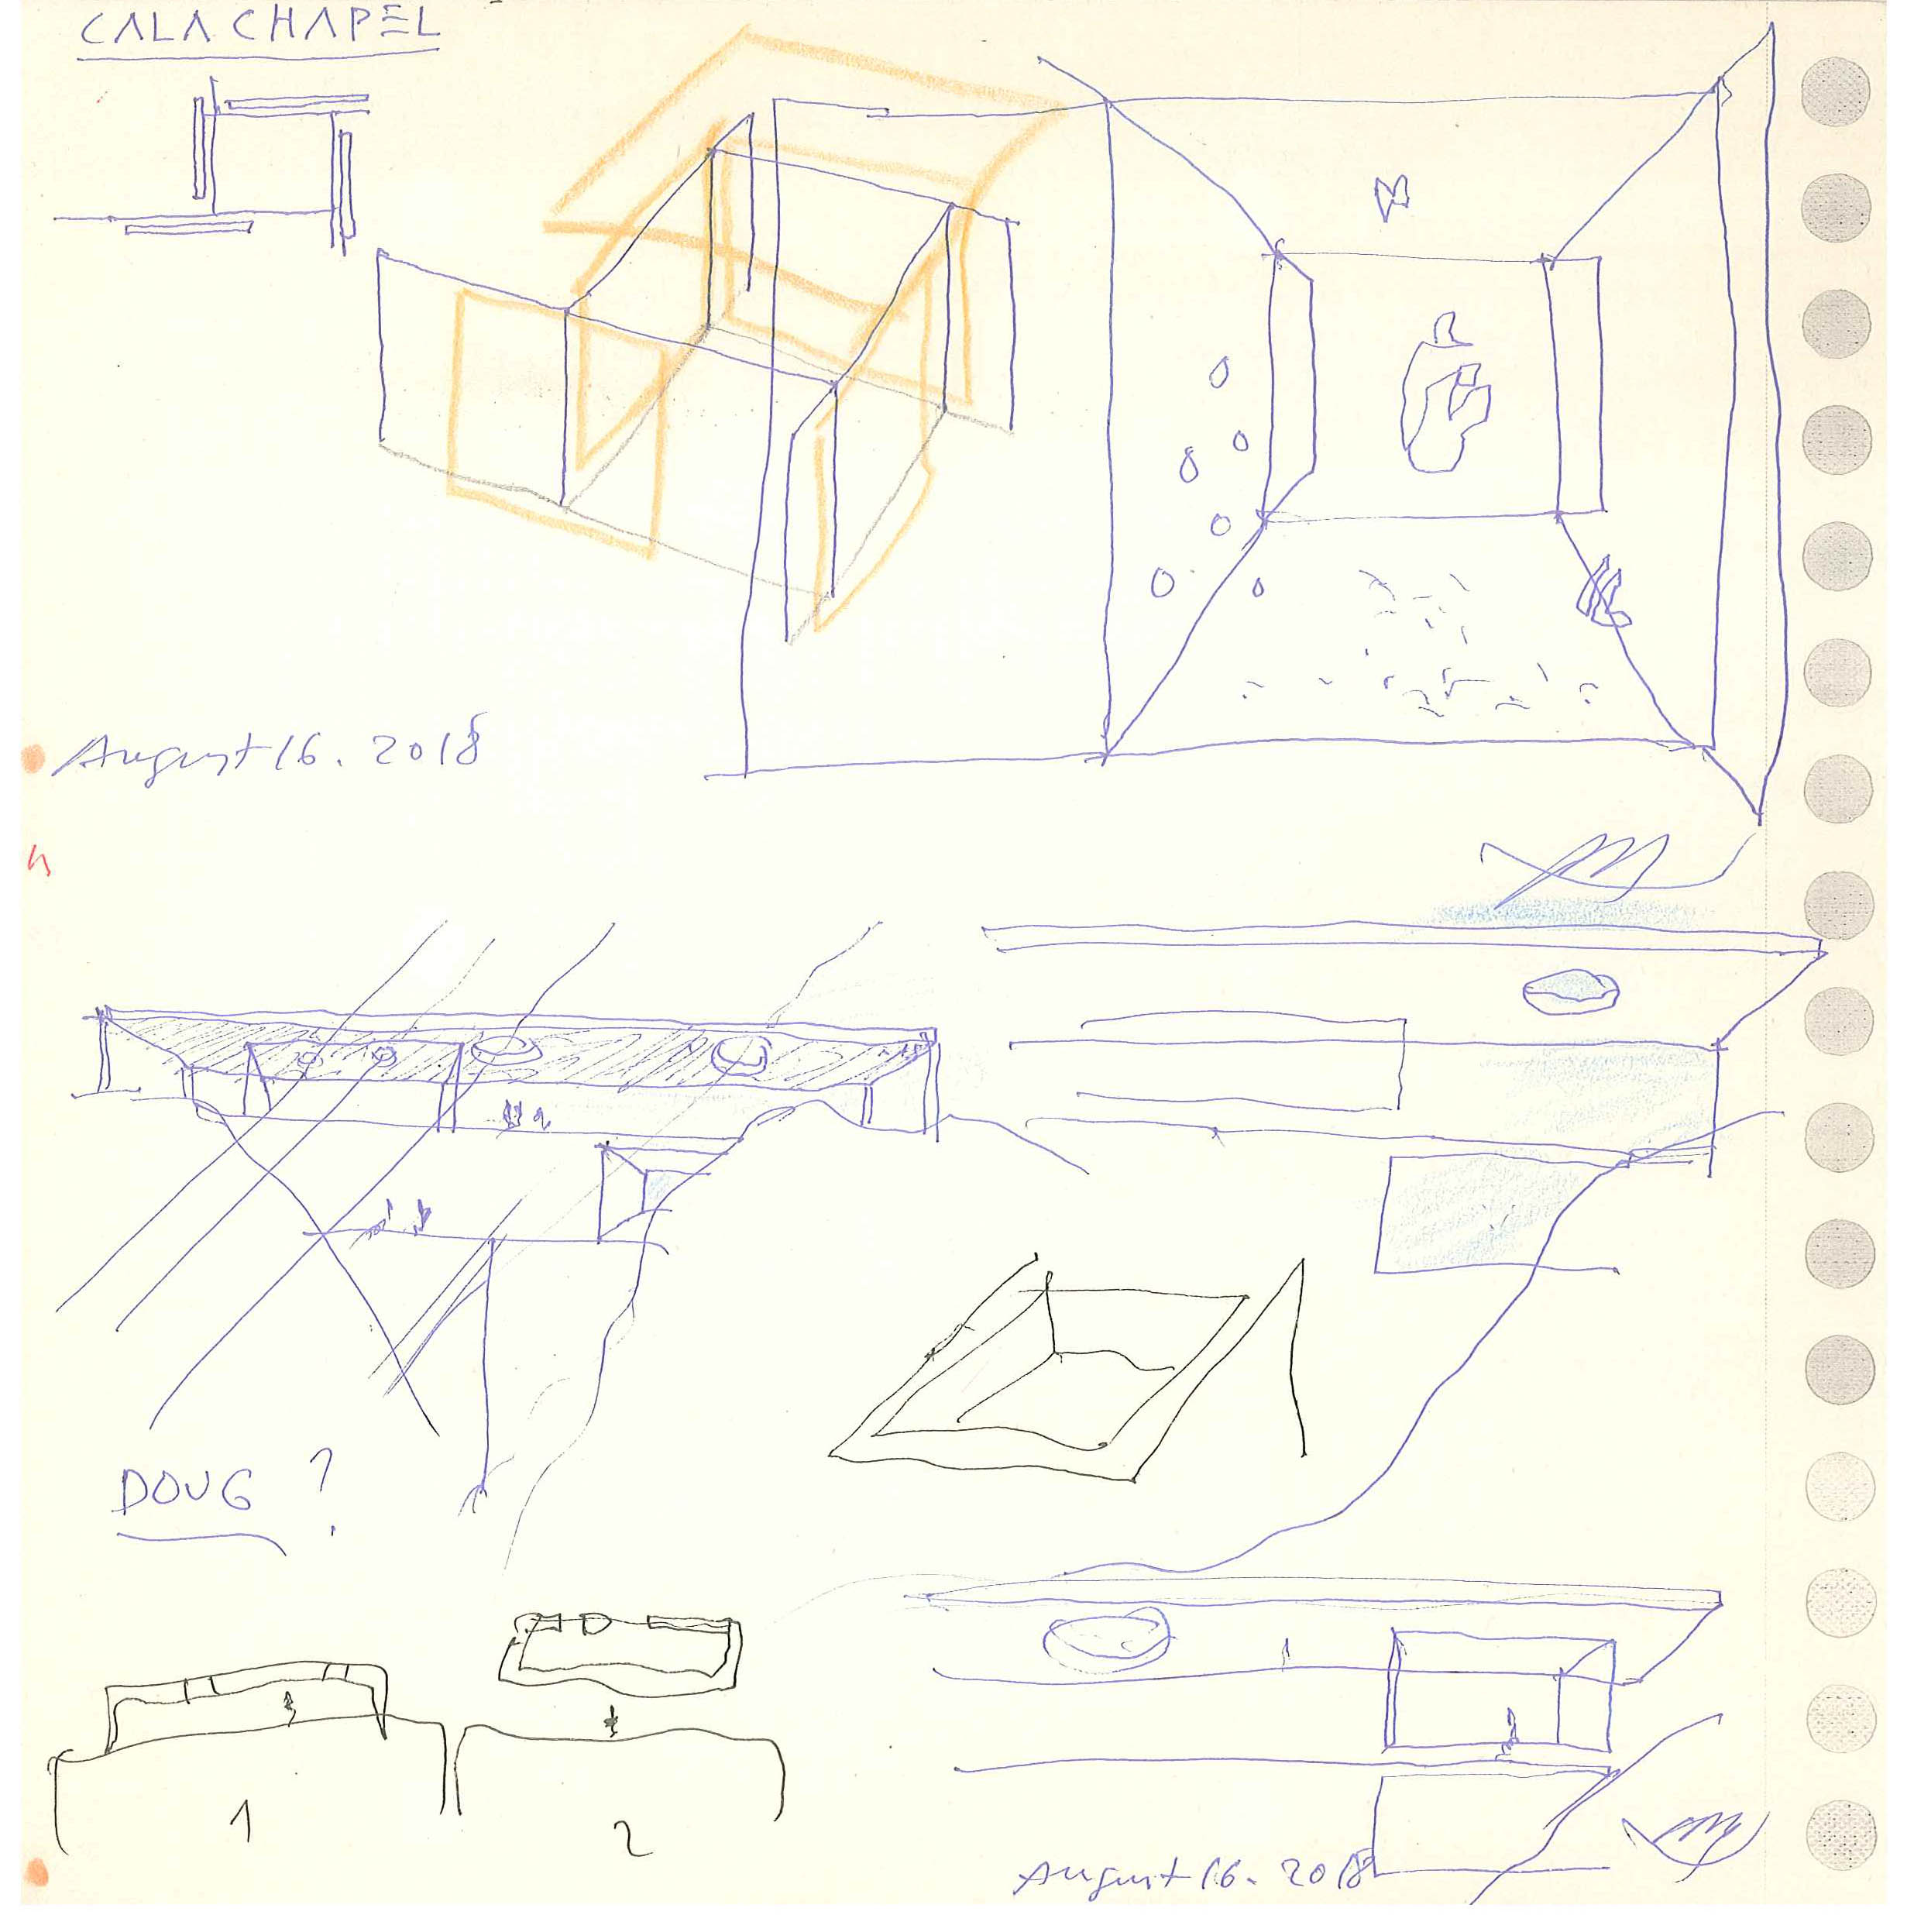 CALA CHAPEL
August 16. 2018
DOUG ?
1
2
August 16. 2018